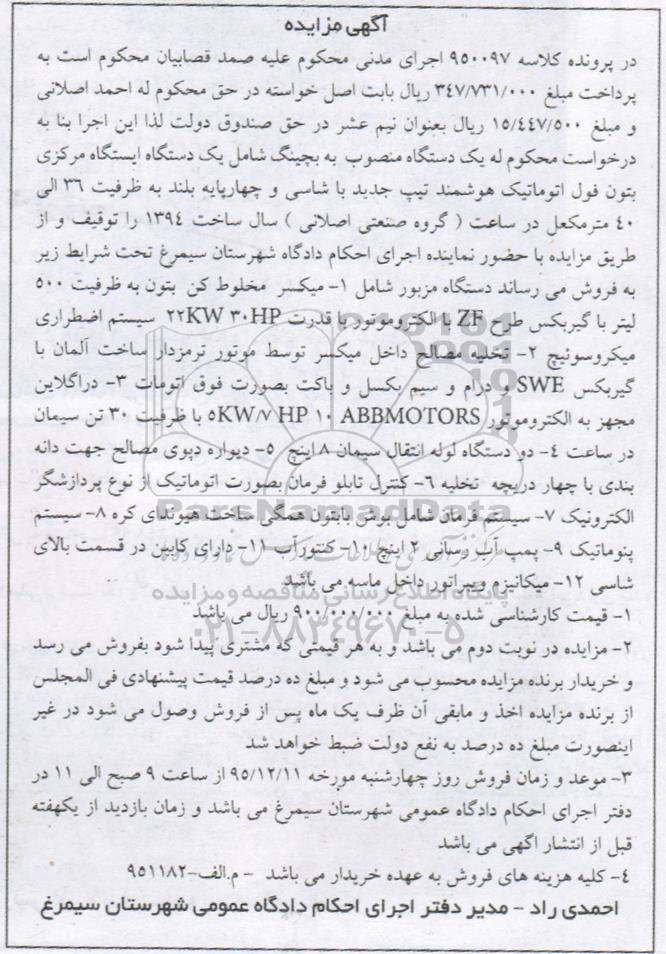 آگهی مزایده
در پرونده کلاسه ۹۵۰۰۹۷ اجرای مدنی محکوم علیه صمد قصابیان محکوم است به
پرداخت مبلغ ۳۴۷/۷۳۱/۰۰۰ ریال بابت اصل خواسته در حق محکوم له احمد اصلانی
و مبلغ ۱۵/۴۴۷/۵۰۰ ریال بعنوان نیم عشر در حق صندوق دولت لذا این اجرا بنا به
درخواست محکوم له یک دستگاه منصوب به بچینگ شامل یک دستگاه ایستگاه مرکزی
بتون فول اتوماتیک هوشمند تیپ جدید با شاسی و چهارپایه بلند به ظرفیت ۳۶ الی
۴۰ مترمکعل در ساعت ( گروه صنعتی اصلانی ) سال ساخت ۱۳۹۴ را توقیف و از
طریق مزایده با حضور نماینده اجرای احکام دادگاه شهرستان سیمرغ تحت شرایط زیر
به فروش می رساند دستگاه مزبور شامل ۱- میکسر مخلوط کن بتون به ظرفیت ۵۰۰
لیتر با گیربکس طرح ZF با الکتروموتور با قدرت ۲۲KW ۳۰HP سیستم اضطراری
میکروسوئیچ ۲- تخلیه مصالح داخل میکسر توسط موتور ترمزدار ساخت آلمان با
گیربکس SWE و درام و سیم بکسل و باکت بصورت فوق اتومات ۳- دراگلاین
مجهز به الکتروموتور ۵KW/۷ HP ۱۰ ABBMOTORS با ظرفیت ۳۰ تن سیمان
در ساعت ۴- دو دستگاه لوله انتقال سیمان ۸ اینچ ۵- دیواره دپوی مصالح جهت دانه
بندی با چهار دریچه تخلیه ۶- کنترل تابلو فرمان بصورت اتوماتیک از نوع پردازشگر
الکترونیک ۷- سیستم فرمان شامل بوش باتتون همگی ساخت هیوندای کره ۸- سیستم
پنوماتیک ۹- پمپ آب رسانی ۲ اینچ ۱۰- کنتورآب ۱۱- دارای کابین در قسمت بالای
شاسی ۱۲- میکانیزم ویبراتور داخل ماسه می باشد
۱- قیمت کارشناسی شده به مبلغ ۹۰۰/۰۰۰/۰۰۰ ریال می باشد
۲- مزایده در نوبت دوم می باشد و به هر قیمتی که مشتری پیدا شود بفروش می رسد
و خریدار برنده مزایده محسوب می شود و مبلغ ده درصد قیمت پیشنهادی فی المجلس
از برنده مزایده اخذ و مابقی آن ظرف یک ماه پس از فروش وصول می شود در غیر
اینصورت مبلغ ده درصد به نفع دولت ضبط خواهد شد
۳- موعد و زمان فروش روز چهارشنبه مورخه ۹۵/۱۲/۱۱ از ساعت ۹ صبح الی ۱۱ در
دفتر اجرای احکام دادگاه عمومی شهرستان سیمرغ می باشد و زمان بازدید از یکهفته
قبل از انتشار اگهی می باشد
۴- کلیه هزینه های فروش به عهده خریدار می باشد - م.الف-۹۵۱۱۸۲
احمدی راد - مدیر دفتر اجرای احکام دادگاه عمومی شهرستان سیمرغ
ParsNamadData
پایگاه اطلاع رسانی مناقصه و مزایده
۰۲۱-۸۸۳۴۹۶۷۰-۵